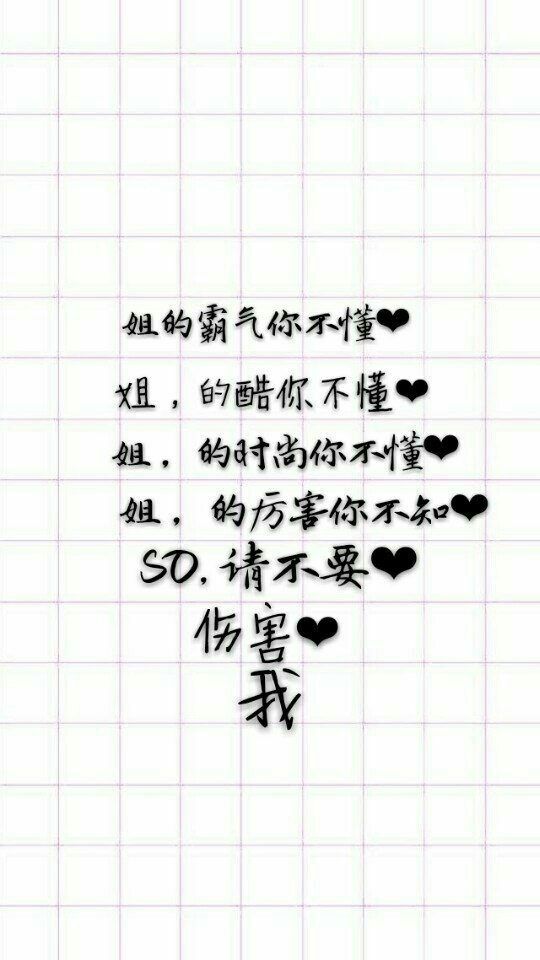 姐的霸气你不懂❤
姐，的酷你不懂❤
姐，的时尚你不懂❤
姐，的厉害你不知❤
SO,请不要❤
伤害❤
我